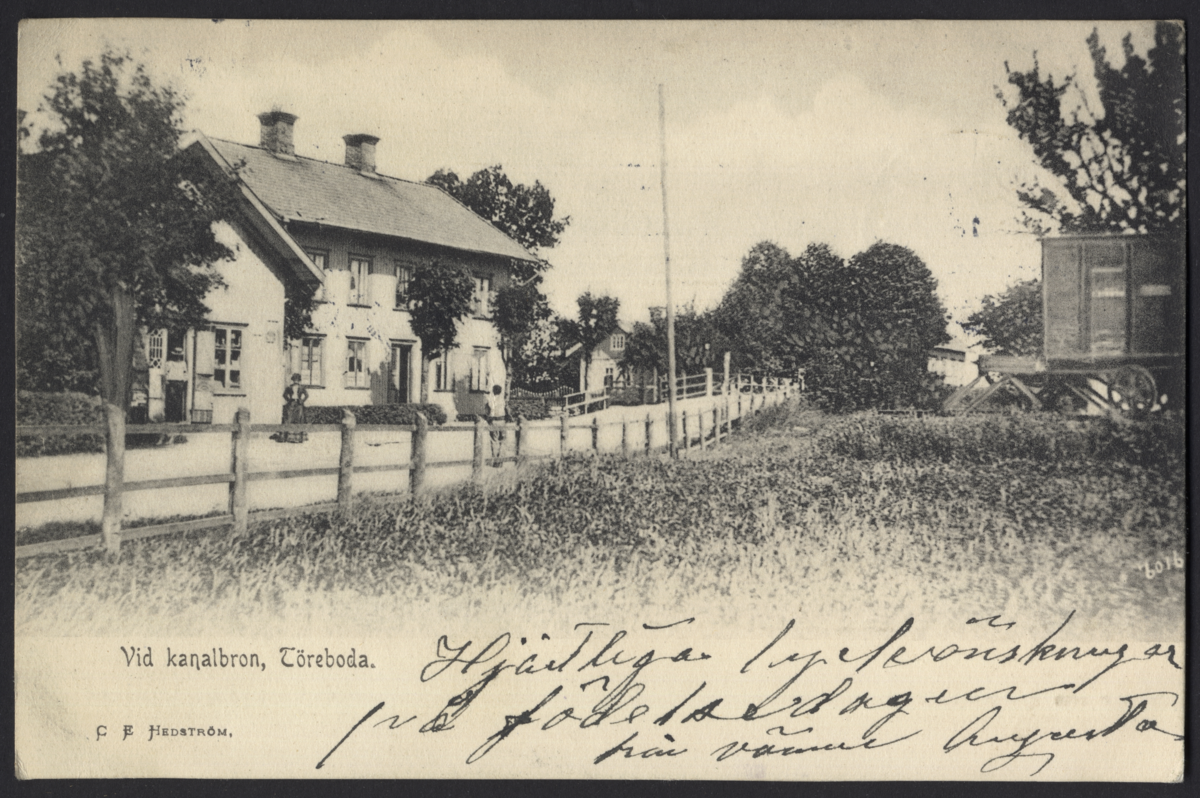 6016
Vid kanalbron, Töreboda.
C E HEDSTRÖM,
Hjärtliga lyckönskningar
på födelsedagen
från vännen Augusta